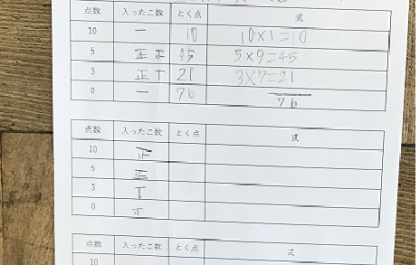 点数 入ったこ数 とく点 式
10 一 10 10×1=10
5 正正 45 5×9=45
3 正T 21 3×7=21
0 一 76 76
点数 入ったこ数 とく点 式
10 正
5 正
3 T
0
点数 入ったこ数 とく点 式
10